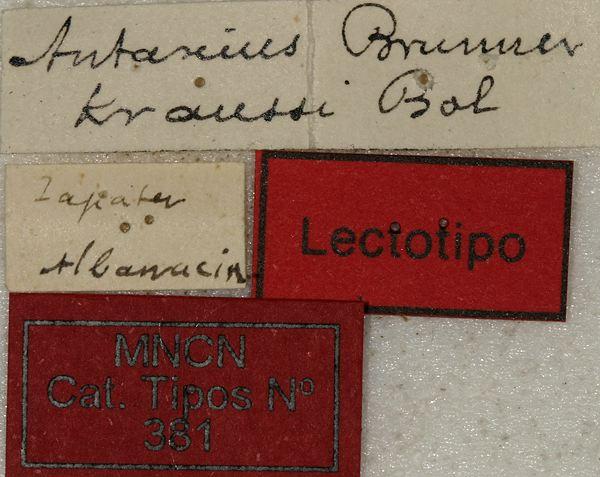 Antaxius Brunner
Kraussi Bol
Zapater
Albarracin
Lectotipo
MNCN
Cat. Tipos Nº
381